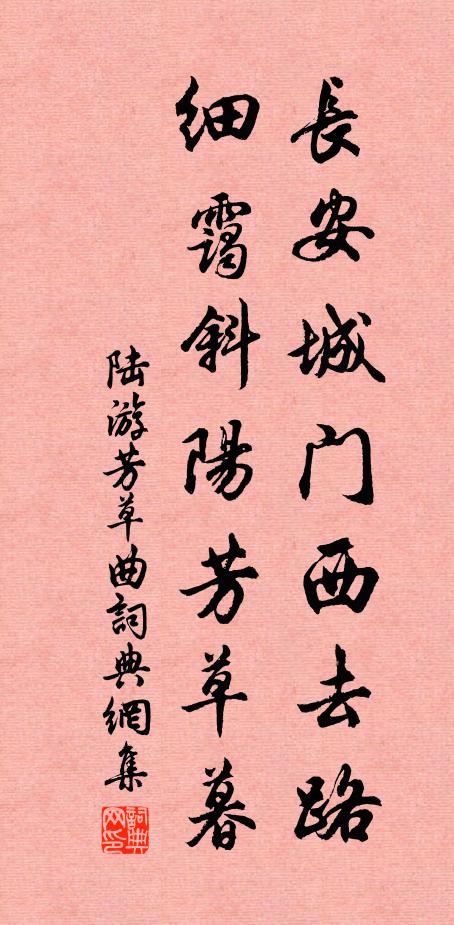 長安城门西去路
细靄斜陽芳草暮
陆游芳草曲詞典網集
詞典网印